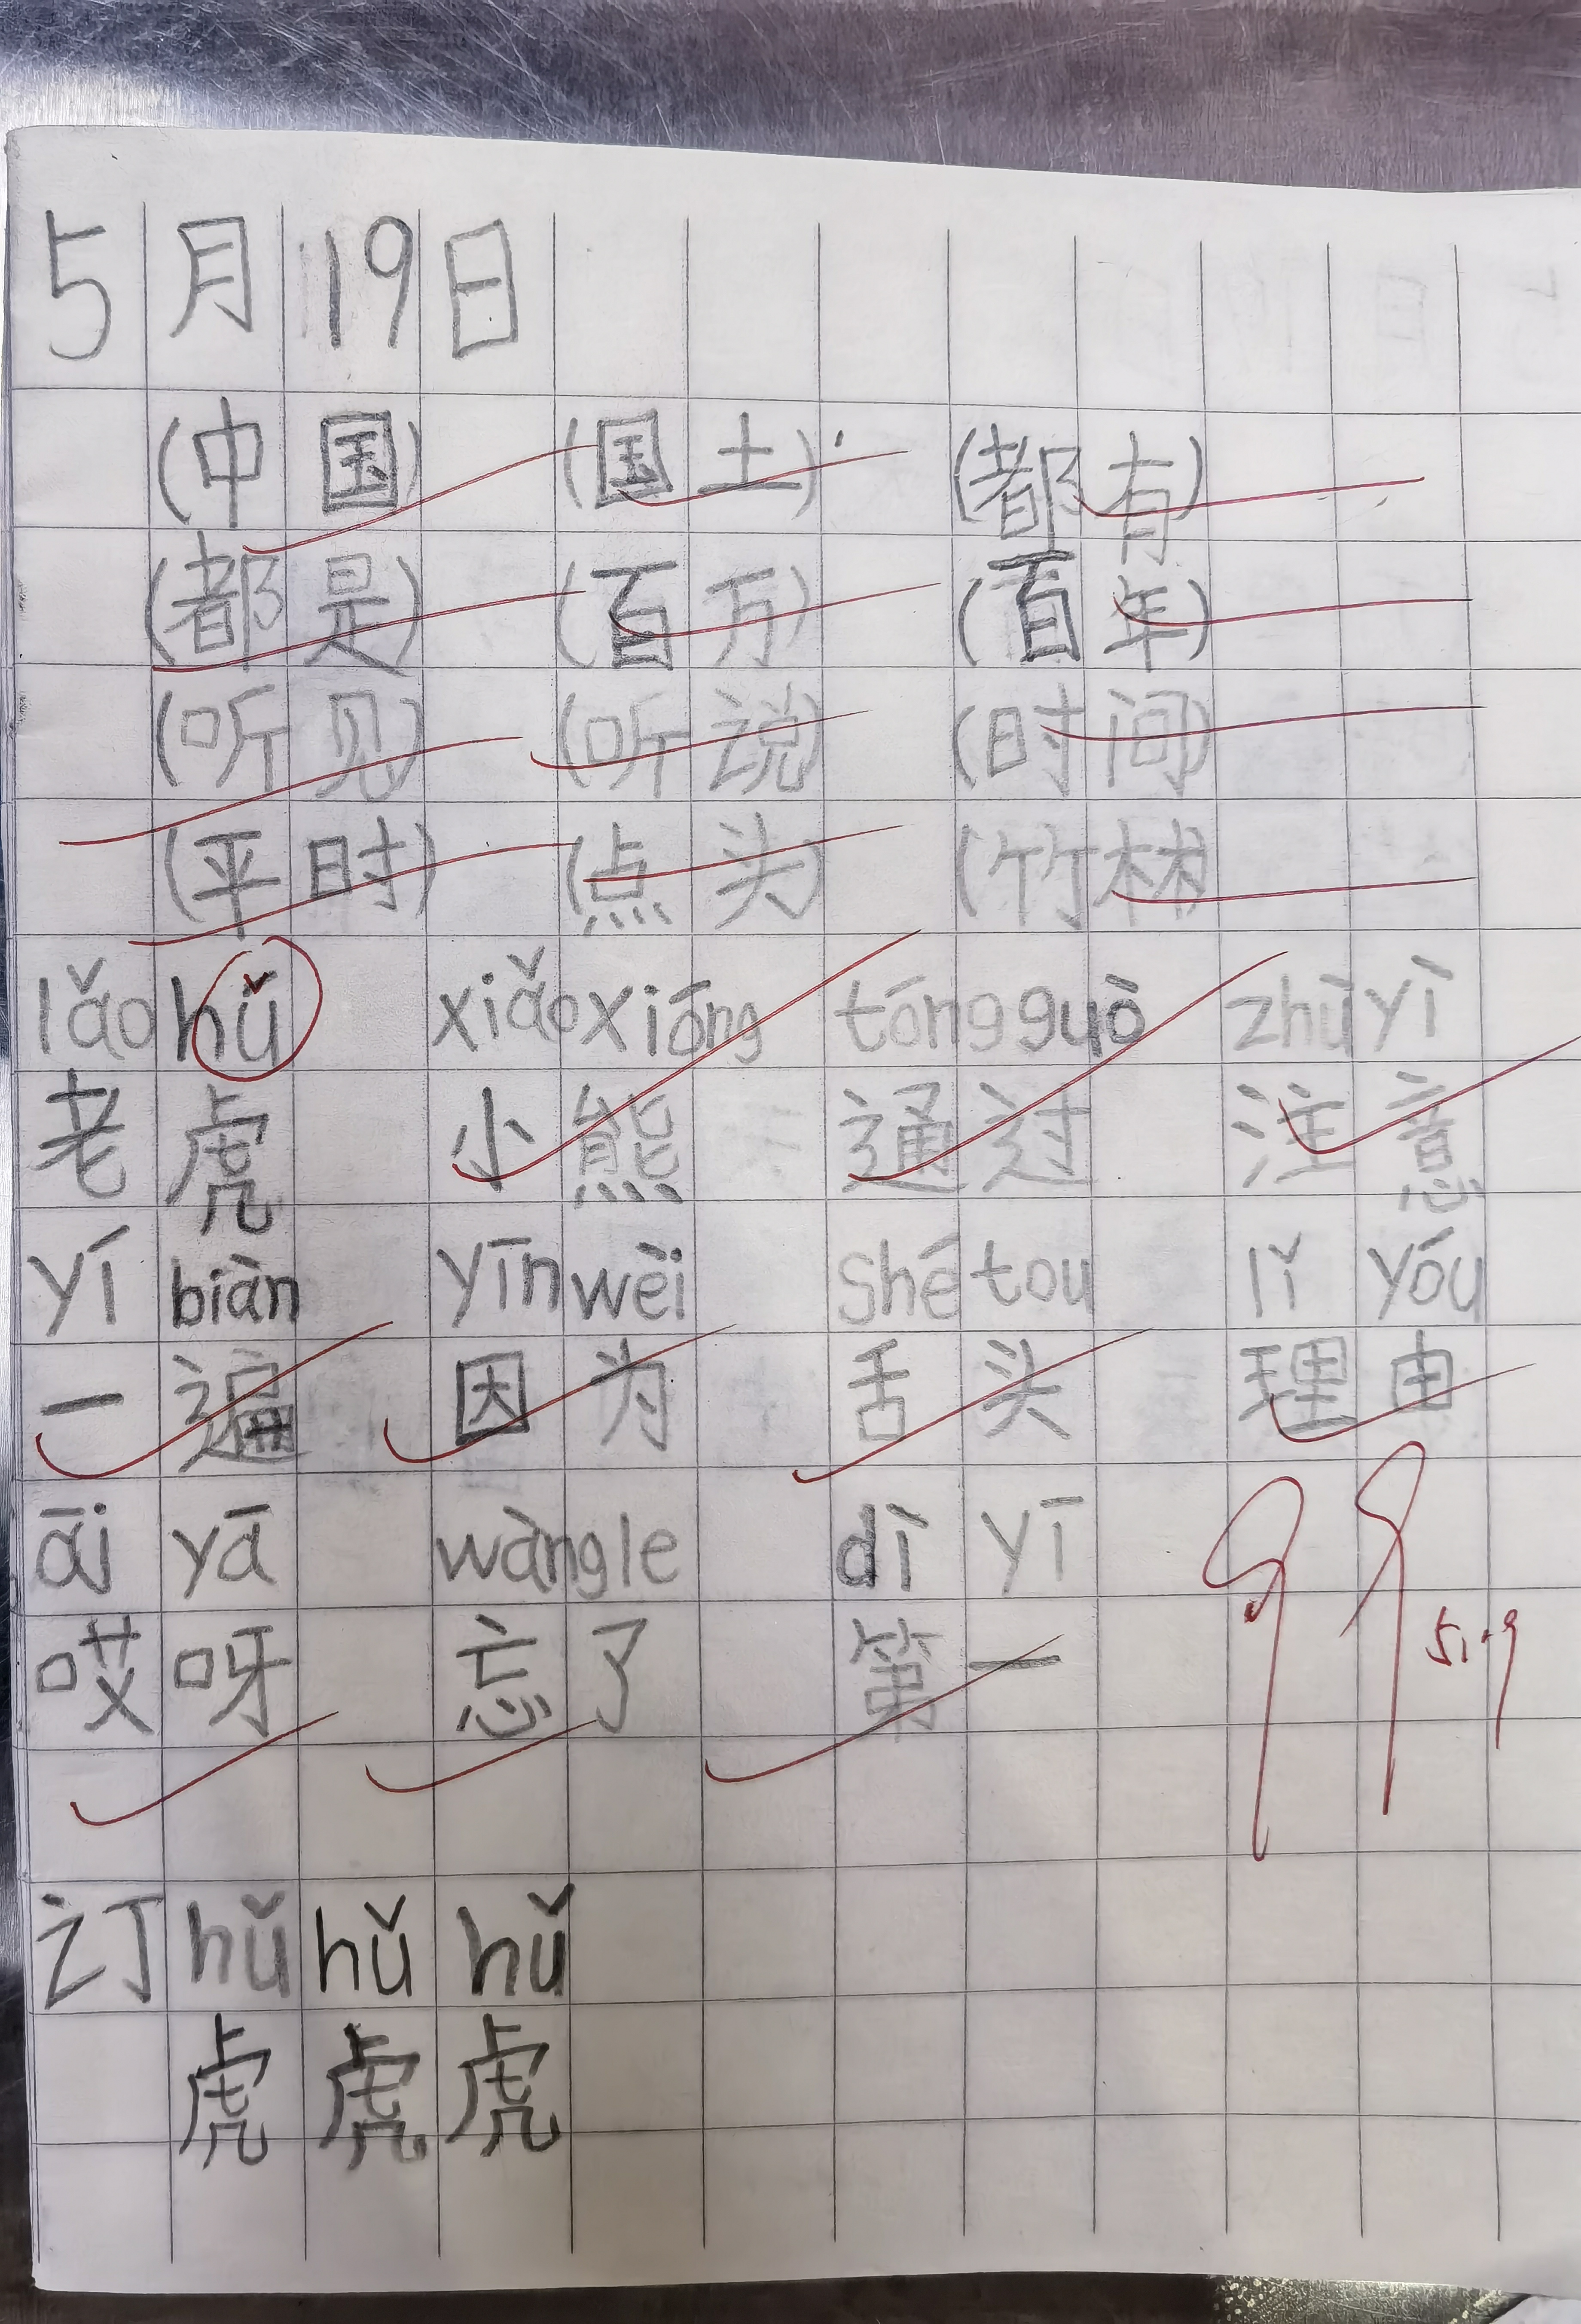 5月19日
(中国) (国土) (都有)
(都是) (百万) (百年)
(听见) (听说) (时间)
(平时) (点头) (竹林
lǎo hǔ xiǎo xióng tóng guò zhù yì
老虎 小熊 通过 注意
yí biàn yīn wèi shé tou lǐ yóu
一遍 因为 舌头 理由
āi yā wàng le dì yī
哎呀 忘了 第一
99
5.19
订 hǔ hǔ hǔ
虎 虎 虎